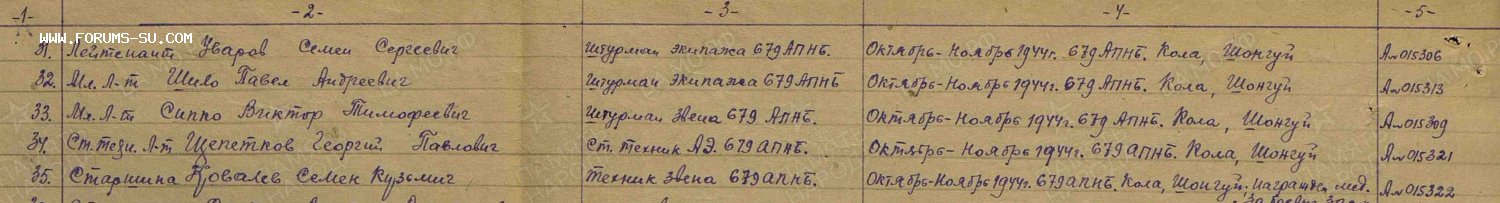 -1- -2- -3- -4- -5-
WWW.FORUMS-SU.COM
31. Лейтенант Уваров Семен Сергеевич Штурман экипажа 679 АПНБ. Октябрь-Ноябрь 1944г. 679 АПНБ. Кола, Шонгуй А№015306
32. Мл. Л-т Шило Павел Андреевич Штурман экипажа 679 АПНБ Октябрь-Ноябрь 1944г. 679 АПНБ. Кола, Шонгуй А№015313
33. Мл. Л-т Сипко Виктор Тимофеевич Штурман Звена 679 АПНБ. Октябрь-Ноябрь 1944г. 679 АПНБ. Кола, Шонгуй А№015309
34. Ст. техн. Л-т Щепетков Георгий Павлович Ст. техник АЭ. 679 АПНБ. Октябрь-Ноябрь 1944г. 679 АПНБ. Кола, Шонгуй А№015321
35. Старшина Ковалев Семен Кузьмич Техник Звена 679 АПНБ. Октябрь-Ноябрь 1944г. 679 АПНБ. Кола, Шонгуй, награжден мед. А№015322